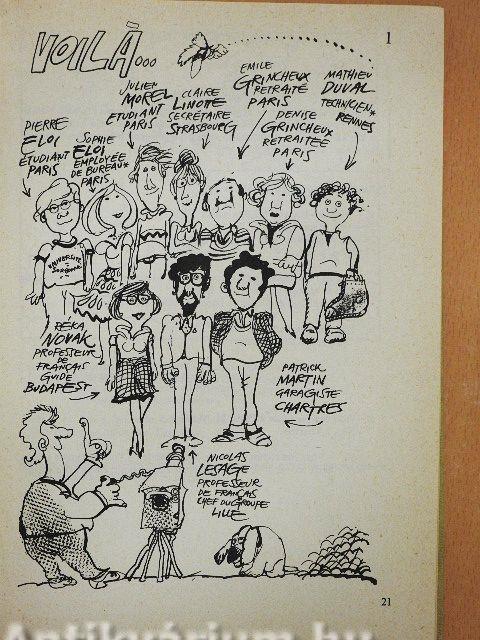 VOILÀ...
1
PIERRE
ELOI
ETUDIANT
PARIS
SOPHIE
ELOI
EMPLOYÉE
DE BUREAU*
PARIS
JULIEN
MOREL
ETUDIANT
PARIS
CLAIRE
LINOTE
SECRÉTAIRE
STRASBOURG
EMILE
GRINCHEUX
RETRAITÉ
PARIS
DENISE
GRINCHEUX
RETRAITÉE
PARIS
MATHIEU
DUVAL
TECHNICIEN*
RENNES
UNIVERSITÉ
SORBONNE
RÉKA
NOVAK
PROFESSEUR
DE
FRANÇAIS
GUIDE
BUDAPEST
PATRICK
MARTIN
GARAGISTE
CHARTRES
NICOLAS
LESAGE
PROFESSEUR
DE FRANÇAIS
CHEF DU GROUPE
LILLE
21
Antikvárium.hu